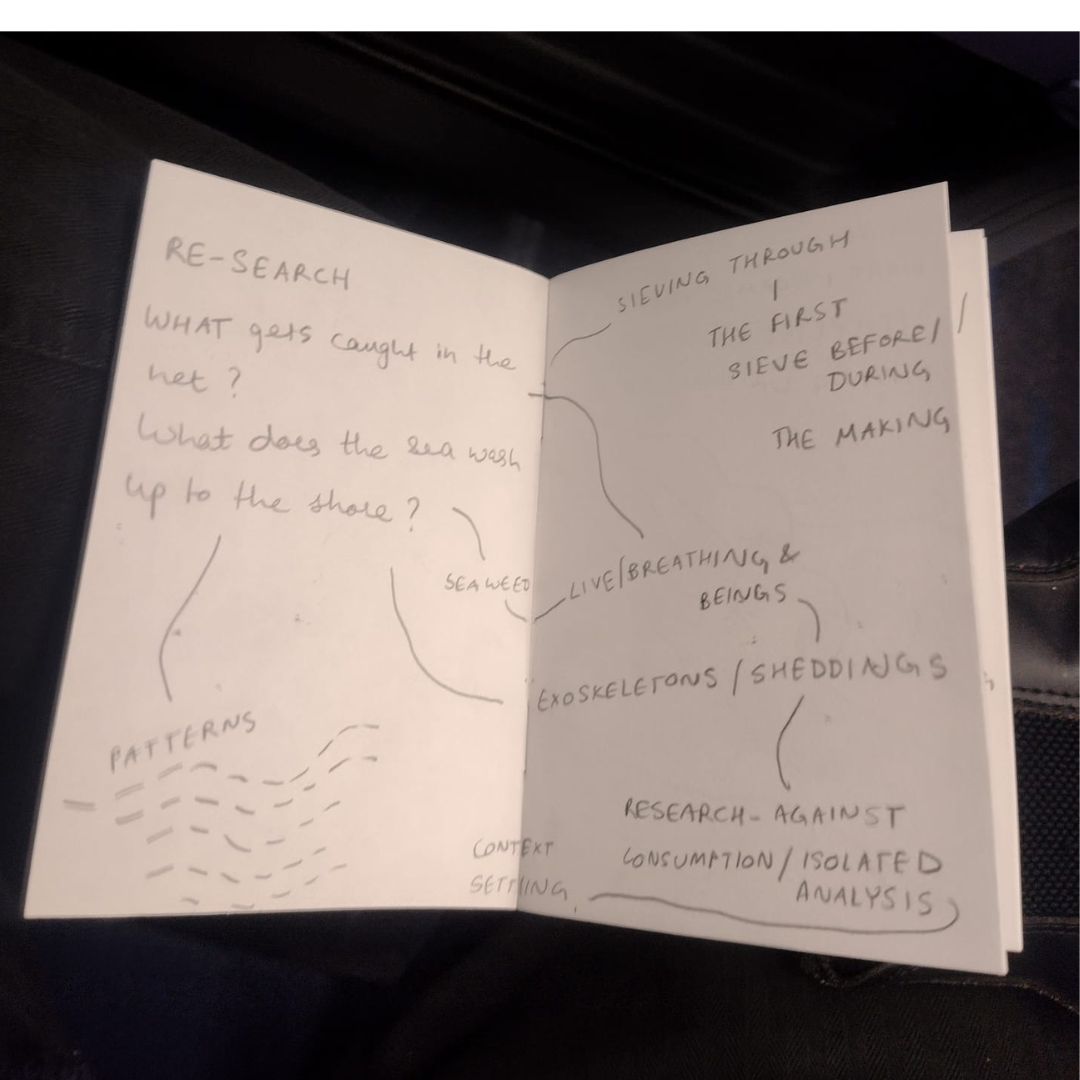 RE-SEARCH
WHAT gets caught in the
net ?
What does the sea wash
up to the shore ?
SEAWEED
PATTERNS
CONTEXT
SETTING
SIEVING THROUGH
THE FIRST
SIEVE BEFORE/
DURING
THE MAKING
LIVE/BREATHING &
BEINGS
EXOSKELETONS / SHEDDINGS
RESEARCH - AGAINST
CONSUMPTION / ISOLATED
ANALYSIS